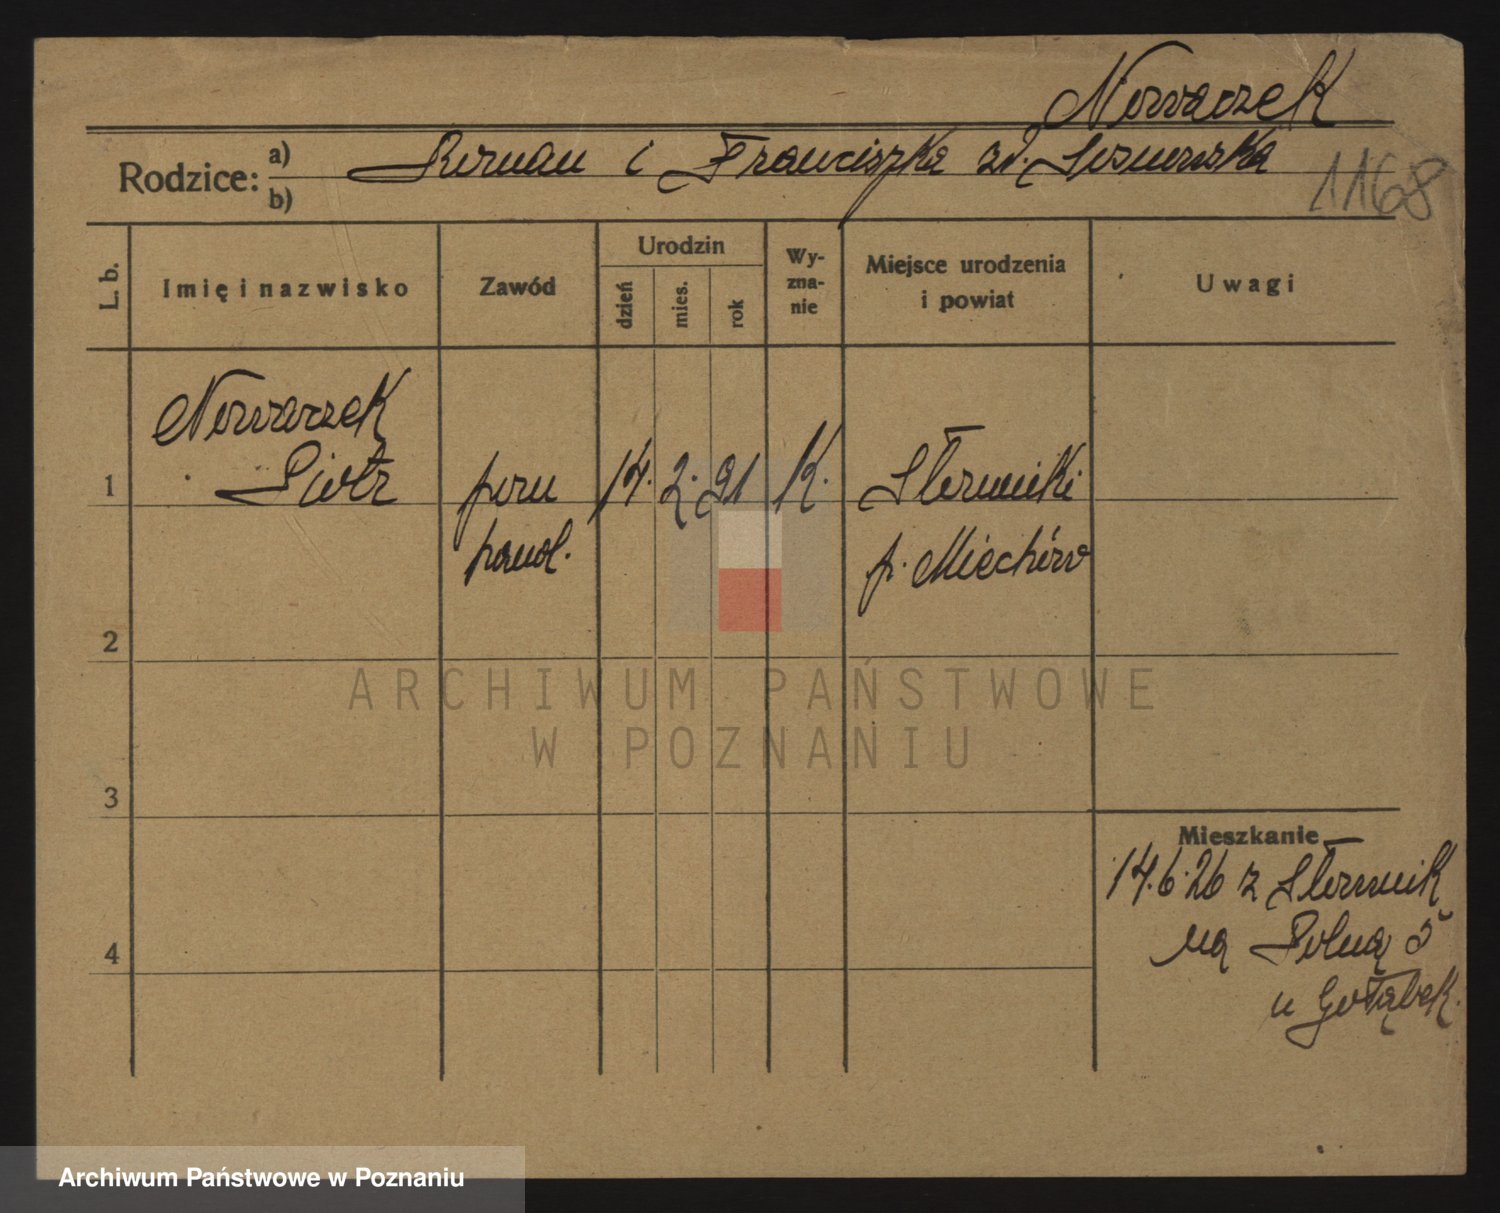 Nowaczek
Rodzice: a) Roman i Franciszka zd. Sosnowska
b)
1168
L. b.
Imię i nazwisko
Zawód
Urodzin
dzień
mies.
rok
Wy-
zna-
nie
Miejsce urodzenia
i powiat
Uwagi
Nowaczek
1 Piotr pom 14. 2. 91 K. Słomniki
hand. p. Miechów
2
3
4
Mieszkanie
14.6.26 z Słomnik
na Polną 5
u Gołąbek.
ARCHIWUM PAŃSTWOWE
W POZNANIU
Archiwum Państwowe w Poznaniu